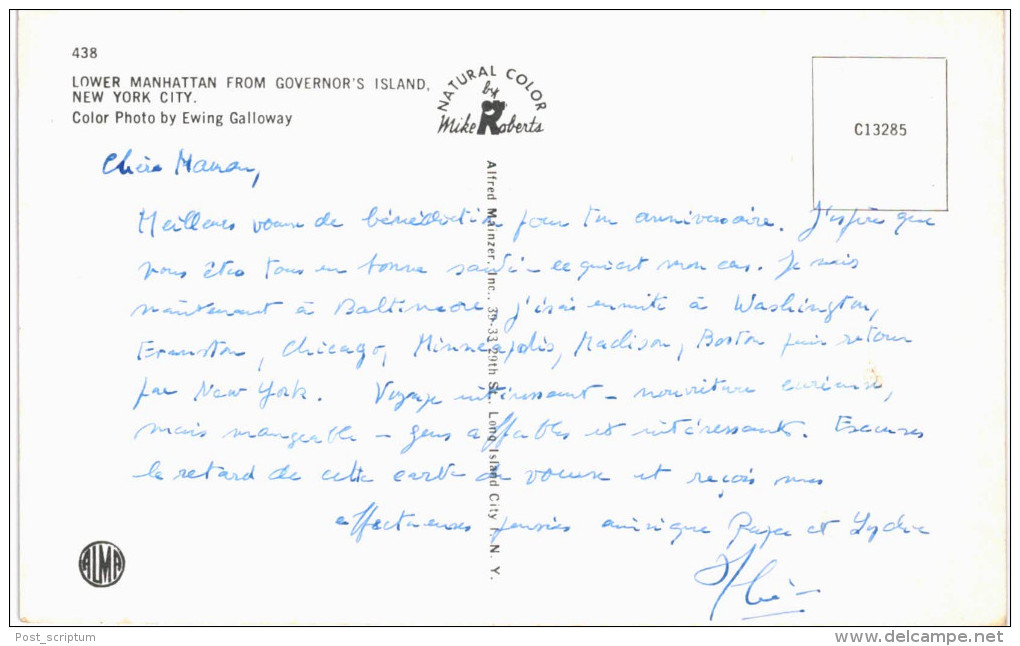 438
LOWER MANHATTAN FROM GOVERNOR'S ISLAND,
NEW YORK CITY.
Color Photo by Ewing Galloway
NATURAL COLOR
by
Mike Roberts
C13285
Alfred Mainzer, Inc., 39-33 29th St., Long Island City 1, N. Y.
Chère Maman,
Meilleurs voeux de bénédiction pour ton anniversaire. J'espère que
vous êtes tous en bonne santé - ce qui est mon cas. Je suis
maintenant à Baltimore. J'irai ensuite à Washington,
Evanston, Chicago, Minneapolis, Madison, Boston puis retour
par New York. Voyage intéressant - nourriture curieuse,
mais mangeable - gens affables et intéressants. Excuses
le retard de cette carte de voeux et reçois mes
affectueuses pensées ainsi que Papa et Lydie
ALMA
Post_scriptum
www.delcampe.net